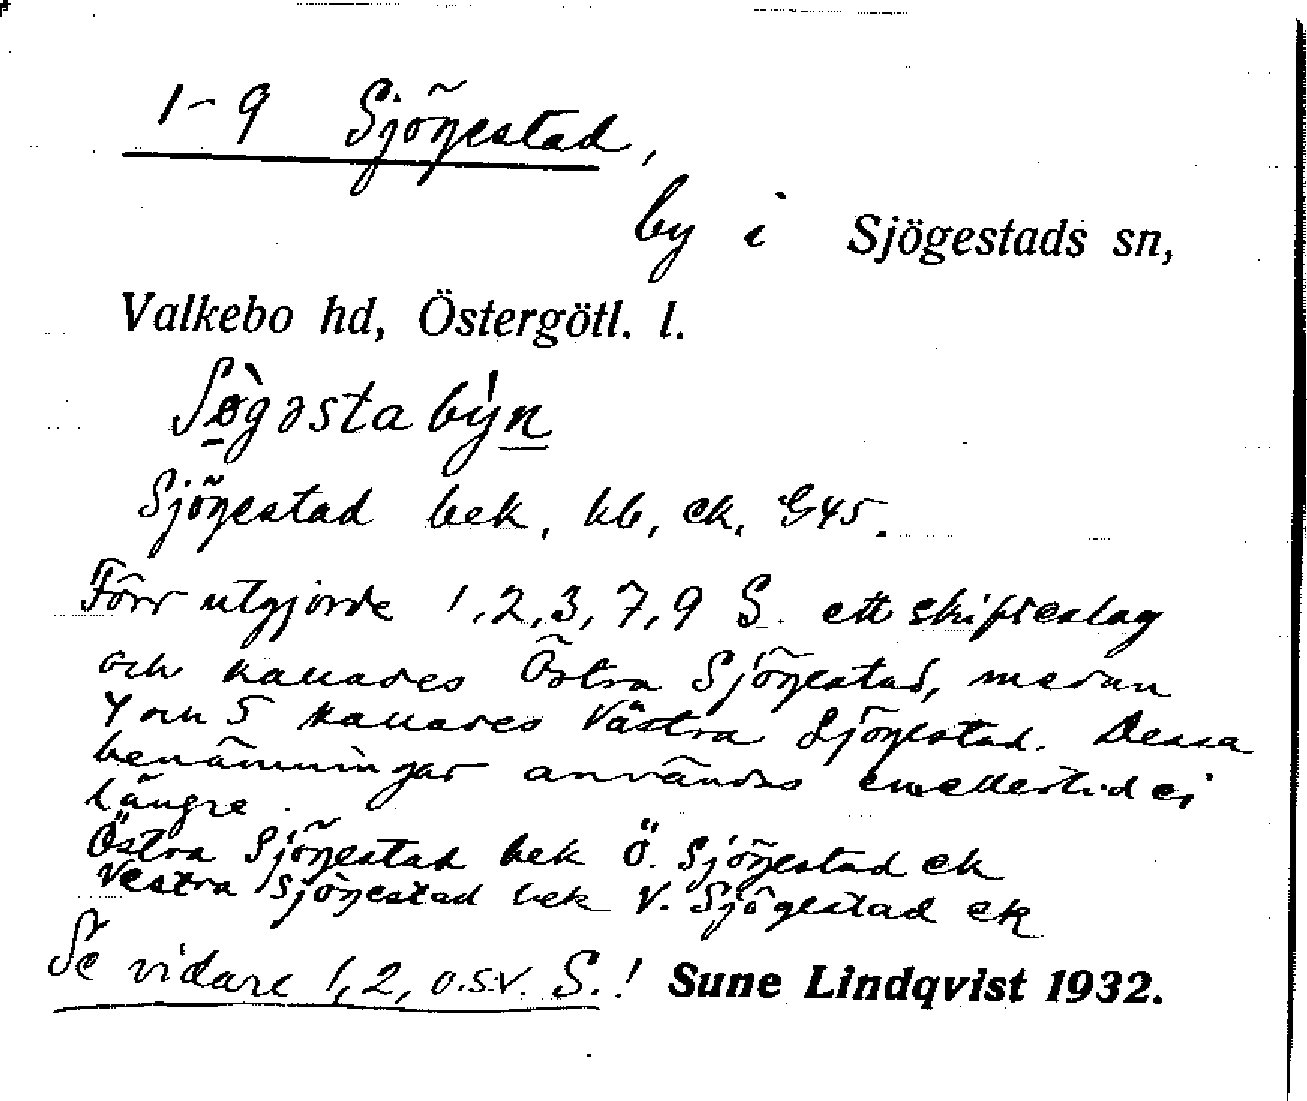 1-9 Sjögestad,
by i Sjögestads sn,
Valkebo hd, Östergötl. l.
Sø̀gəsta bỳn
Sjögestad bek, kb, ek. G45.
Förr utgjorde 1,2,3,7,9 S. ett skifteslag
och kallades Östra Sjögestad, medan
4 och 5 kallades Västra Sjögestad. Dessa
benämningar användes emellertid ej
längre.
Östra Sjögestad bek Ö. Sjögestad ek
Vestra Sjögestad bek V. Sjögestad ek
Se vidare 1, 2, o.s.v. S.! Sune Lindqvist 1932.